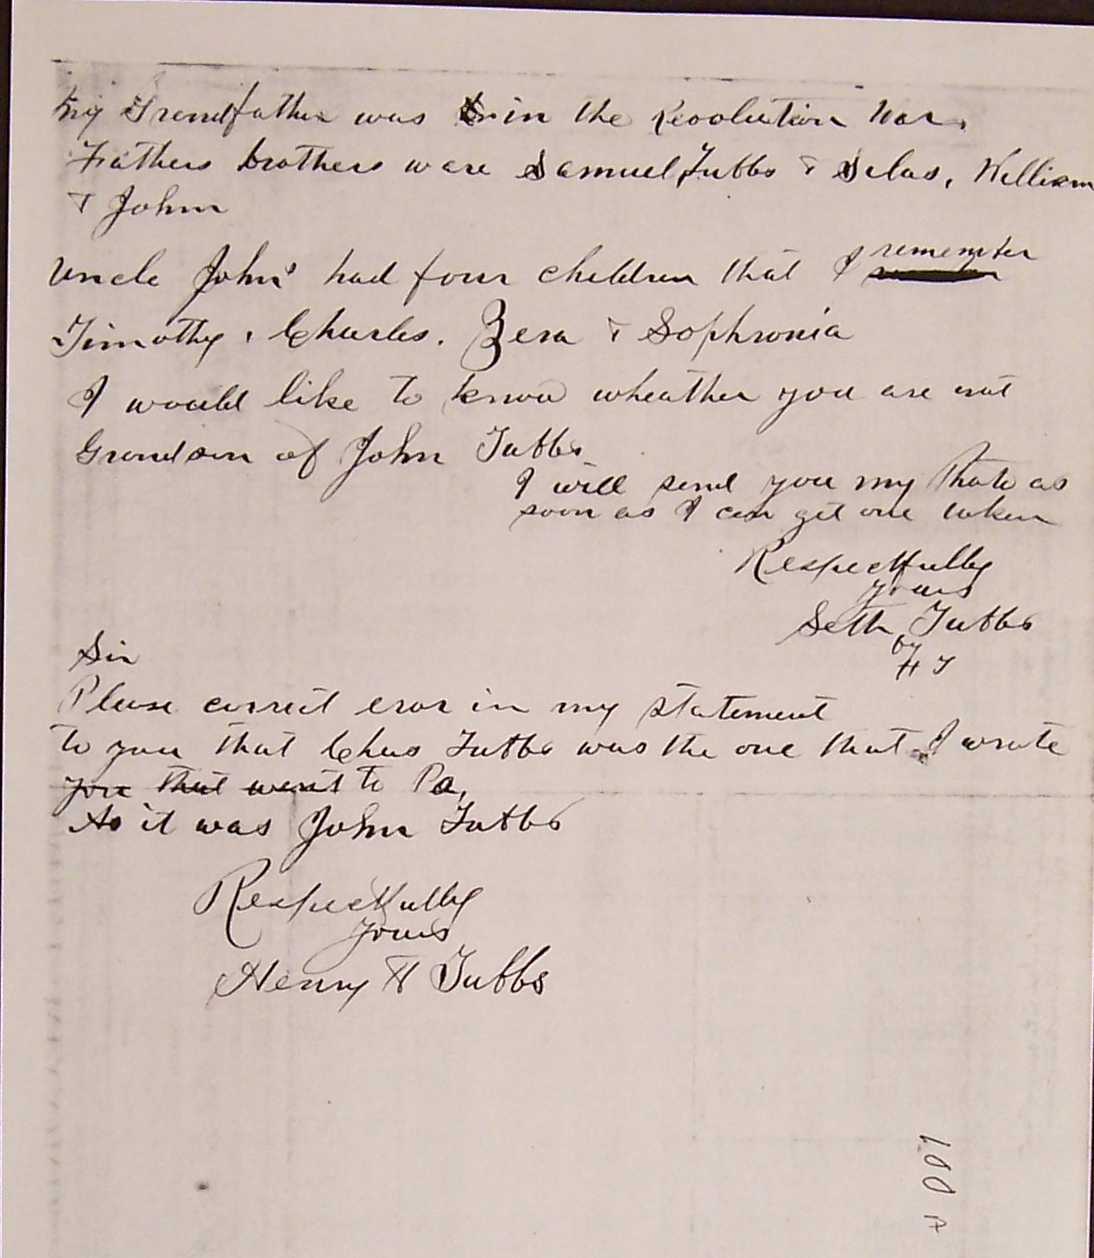 My Grandfather was in the Revolution War.
Fathers brothers ware Samuel Tubbs & Silas, William
& John
Uncle John' had four children that I remember
Timothy, Charles. Zera & Sophronia
I would like to know wheather you are not
Grandson of John Tubbs
I will send you my Photo as
soon as I can get one taken
Respectfully
yours
Seth Tubbs
by
H T
Sir
Please correct eror in my statement
to you that Chas Tubbs was the one that I wrote
you that went to Pa.
As it was John Tubbs
Respectfully
yours
Henry H Tubbs
100 A